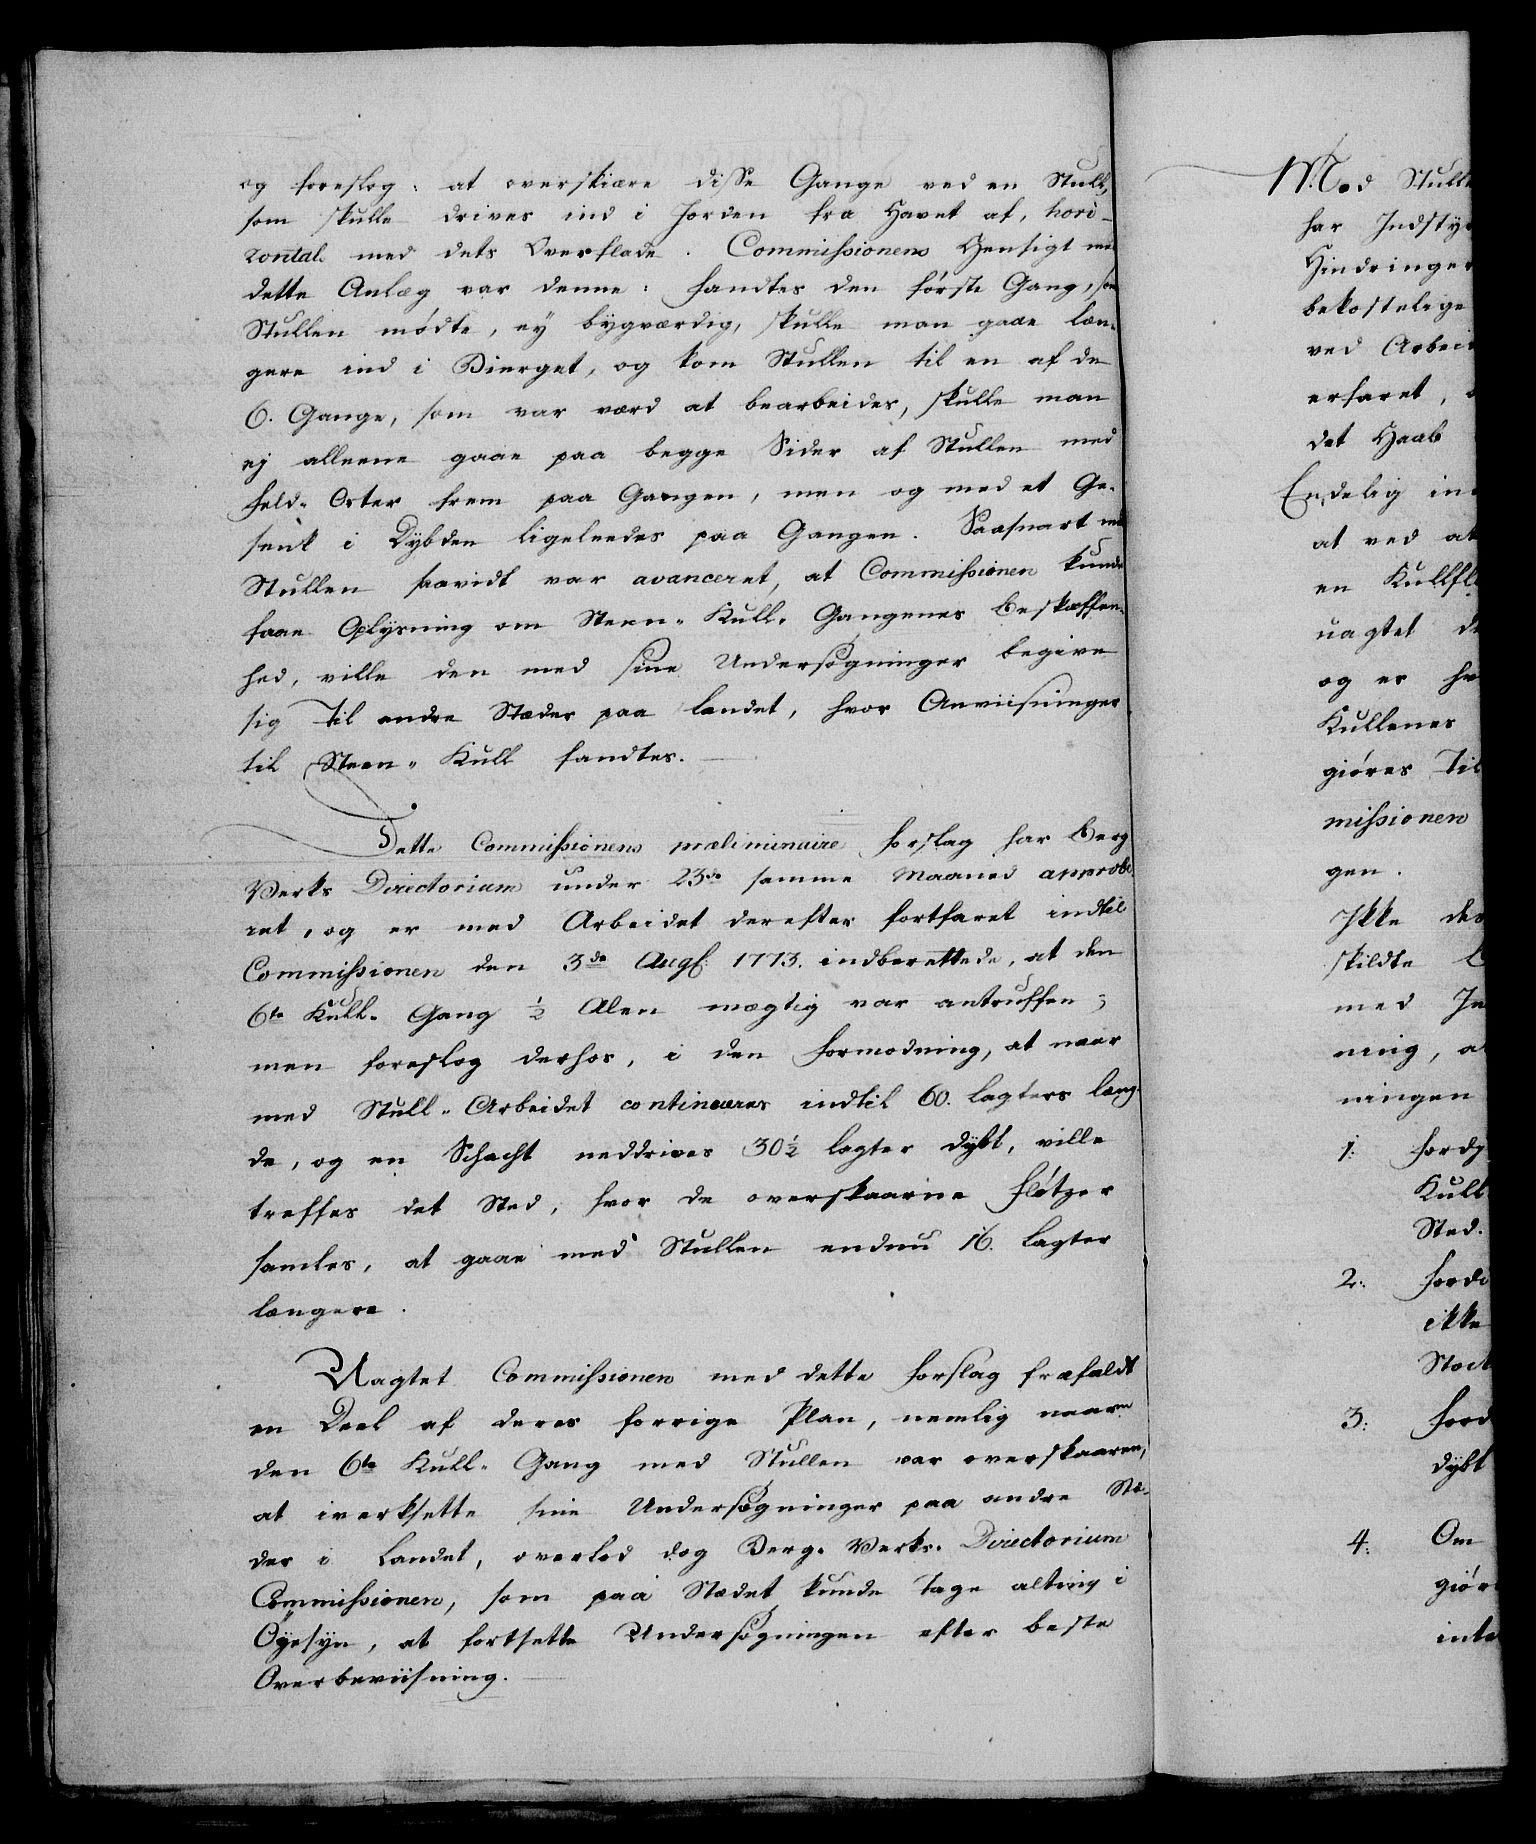 og foreslog: at overskiære disse Gange ved en Stull,
som skulle drives ind i Jorden fra Havet af, hori-
zontal med dets Overflade. Commissionens Hensigt med
dette Anlæg var denne: fandtes den første Gang, som
Stullen mødte, ey bygværdig, skulle man gaae læn-
gere ind i Bierget, og kom Stullen til en af de
6. Gange, som var værd at bearbeides, skulle man
ej alleene gaae paa begge Sider af Stullen med
Feld-Orter frem paa Gangen, men og med et Ge-
senk i Dybden ligeleedes paa Gangen. Saasnart med
Stullen saavidt var avanceret, at Commissionen kunde
faae Oplysning om Steen-Kull-Gangenes Beskaffen-
hed, ville den med sine Undersøgninger begive
sig til andre Stæder paa Landet, hvor Anviisninger
til Steen-Kull fandtes.
Dette Commissionens præliminaire Forslag har Berg
Verks Directorium under 23de samme Maaned approbe-
ret, og er med Arbeidet derefter fortfaret indtil
Commissionen den 3de Augs: 1773. indberettede, at den
6te Kull-Gang ½ Alen mægtig var antruffen;
men foreslog derhos, i den Formodning, at naar
med Stull-Arbeidet continueres indtil 60. Lagters Læng-
de, og en Schacht neddrives 30½ Lagter dybt, ville
treffes det Sted, hvor de overskaarne Fløtzer
samles, at gaae med Stullen endnu 16. Lagter
længere.
Uagtet Commissionen med dette Forslag frafaldt
en Deel af deres forrige Plan, nemlig naar
den 6te Kull-Gang med Stullen var overskaaren,
at iverksette sine Undersøgninger paa andre Stæ-
der i Landet, overlod dog Berg-Verks-Directorium
Commissionen, som paa Stædet kunde tage alting i
Øyesyn, at fortsette Undersøgningen efter beste
Overbeviisning.
Med Stulle
har Indstyr
Hindringer
bekostelige
ved Arbei
erfaret,
det Haab
Endelig in
at ved at
en Kullfl
uagtet d
og er hv
Kullenes
giøres Til
missionen
gen.
Ikke des
skildte
med In
ning, a
ningen
1: fordj
Kull
Sted.
2: fordi
ikke
Stæd
3: ford
dybt
4: Om
giør
inte